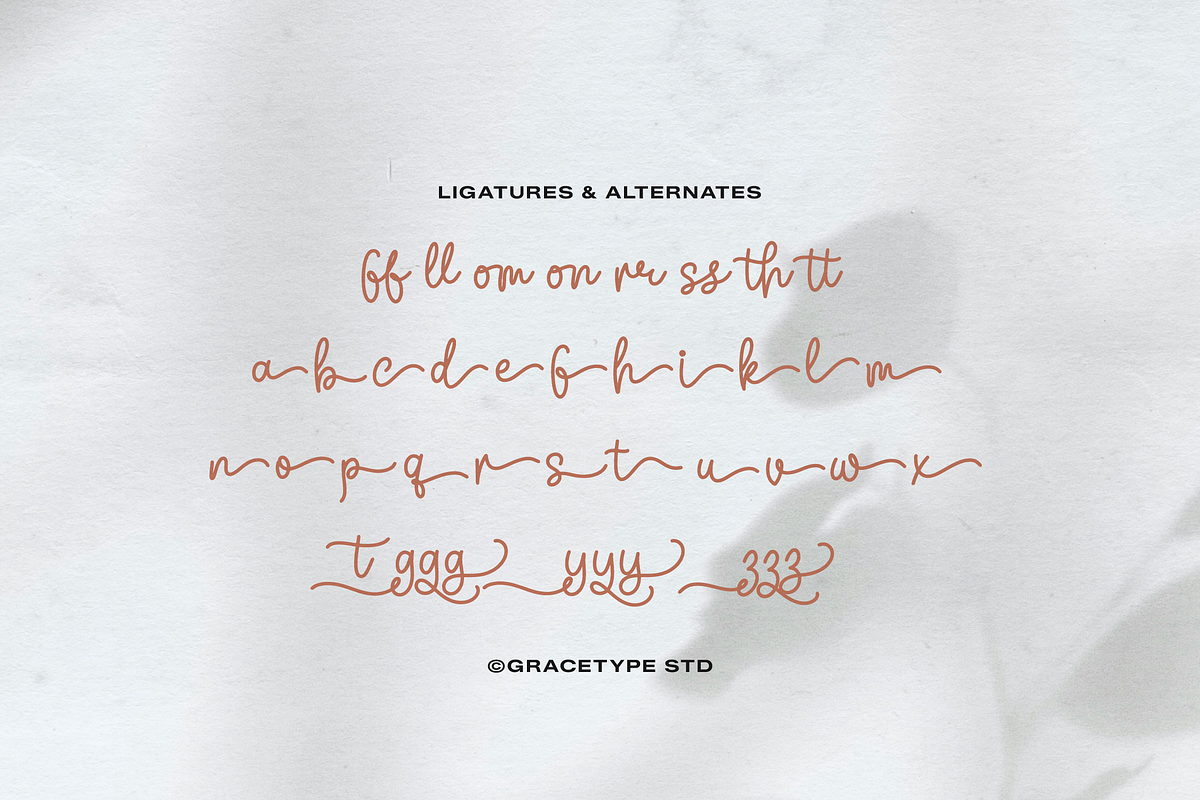 LIGATURES & ALTERNATES
ff ll om on rr ss th tt
a b c d e f h i k l m
n o p q r s t u v w x
t ggg yyy zzz
©GRACETYPE STD